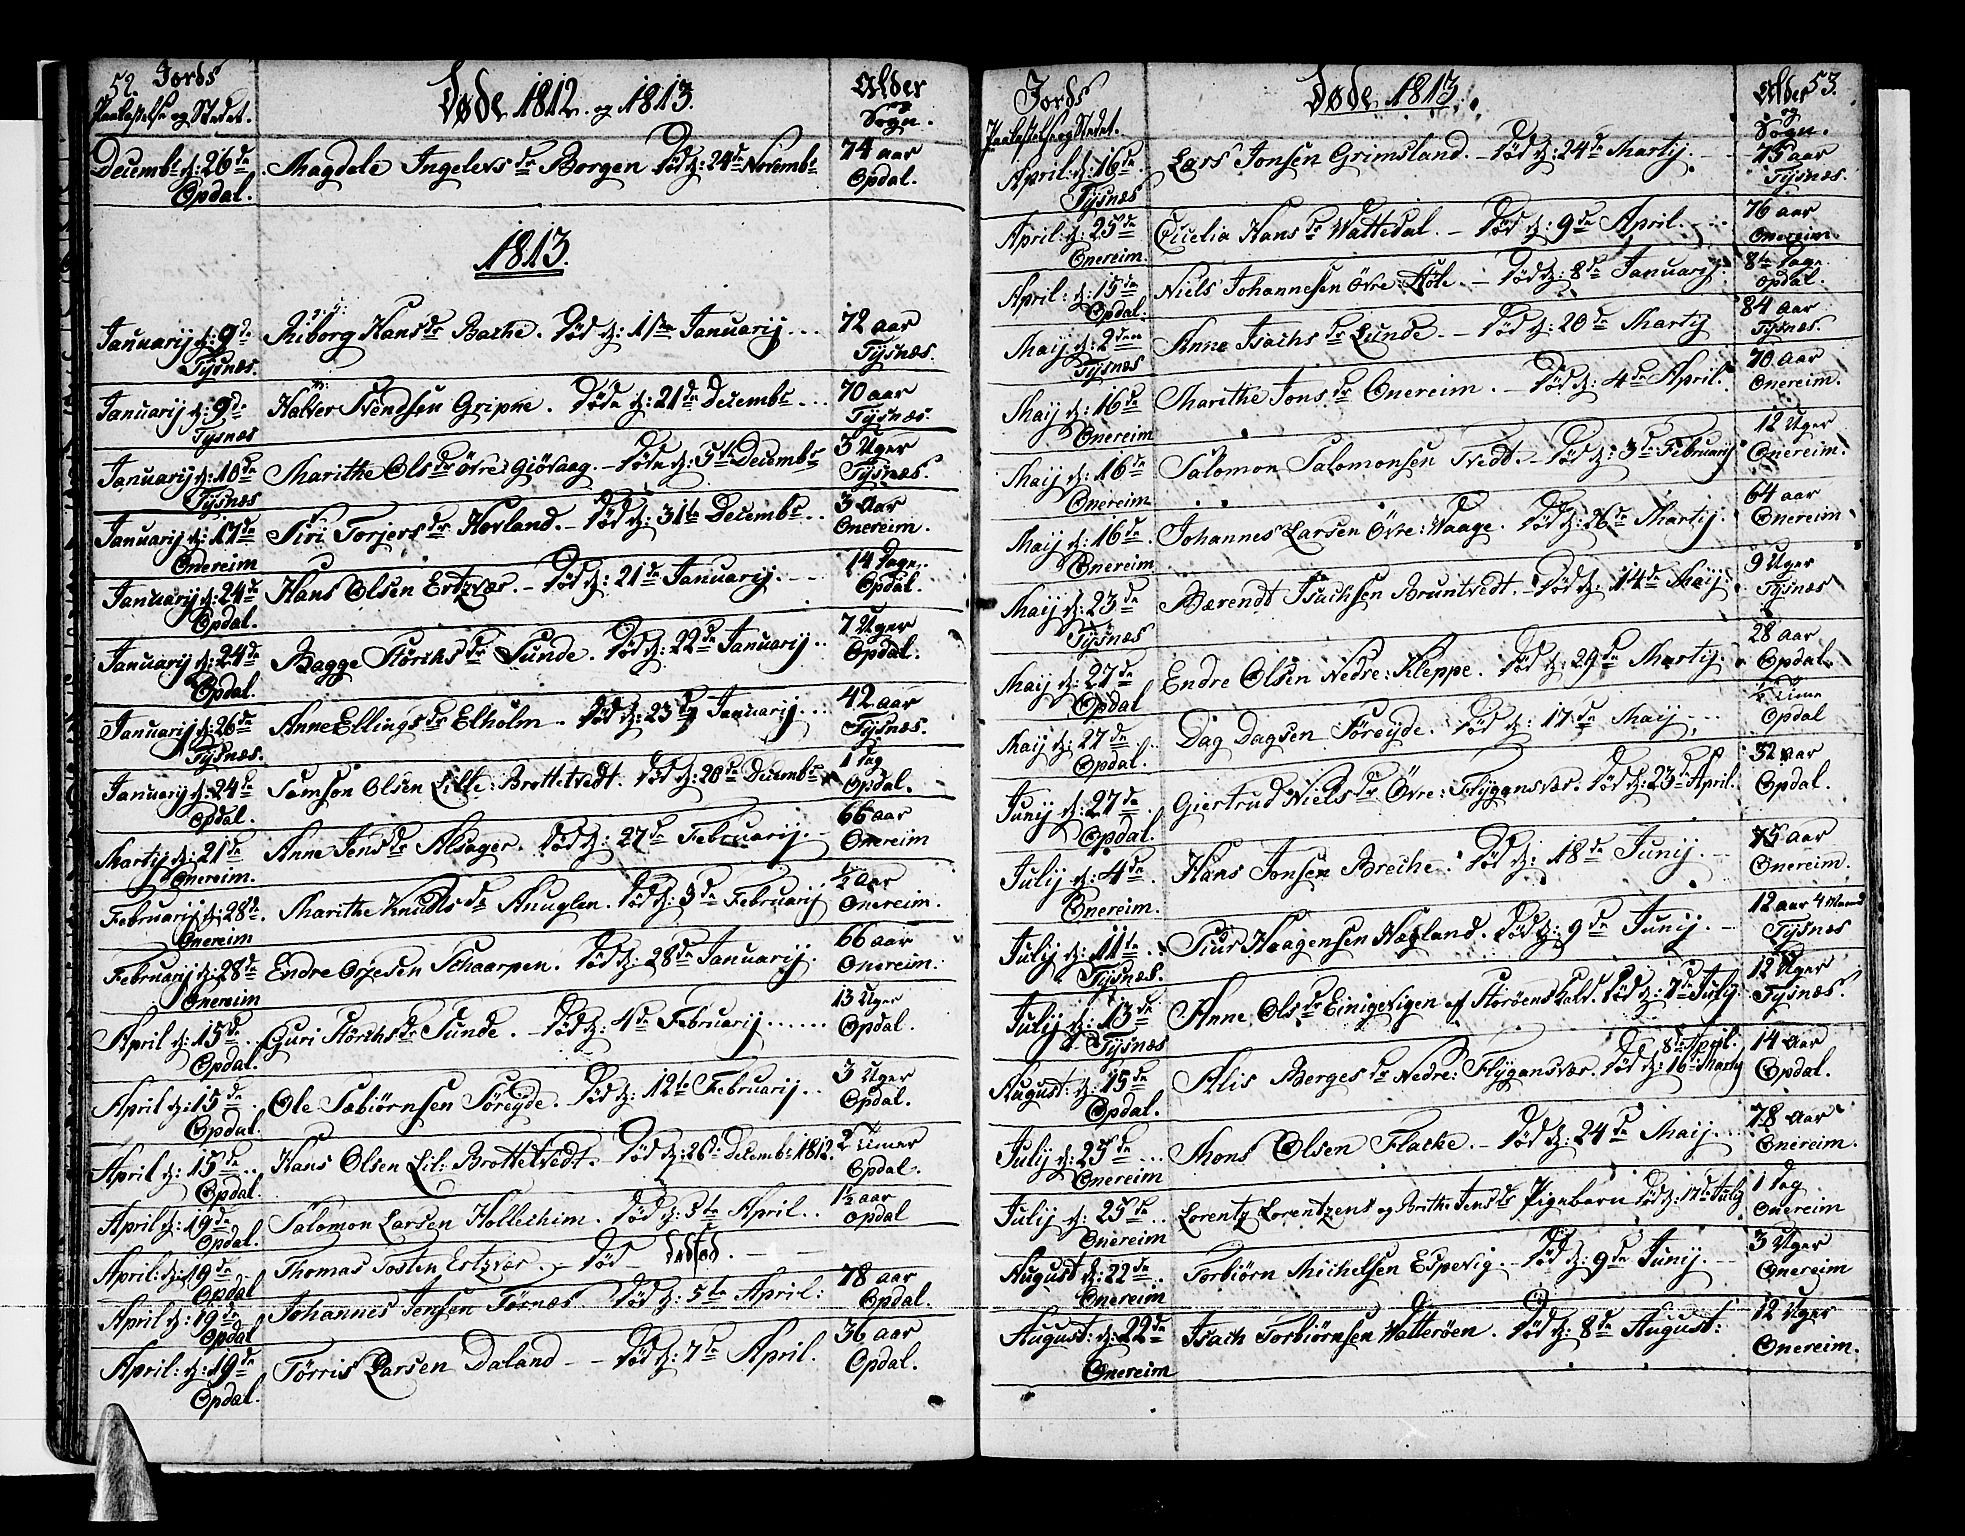 52. Jords
Paakastelse og Stedet.
Døde 1812 og 1813.
Alder
og
Sogn.
Decembr d: 26de Magdele Ingelevs dr Borgen Død d: 24de Novembr 74 aar
Opdal. Opdal.
1813.
Januarij d: 9de Riborg Hans dr Bache. Død d: 1ste Januarij... 72 aar
Tysnæs. Tysnæs.
Januarij d: 9de Halver Svendsen Gripne. Døde d: 21de Decembr... 70 aar
Tysnæs Tysnæs.
Januarij d: 10de Marithe Ols dr Øvre Giøvaag. - Døde d: 5te Decembr 3 Uger
Tysnæs Tysnæs.
Januarij d: 17de Siri Torjers dr Hovland. - Død d: 31te Decembr.. 3 Aar
Onereim Onereim.
Januarij d: 24de Hans Olsen Ertzvær. - Død d: 21de Januarij. - - 14 Dage.
Opdal. Opdal.
Januarij d: 24de Bagge Størchs dr Sunde. Død d: 22de Januarij.. 7 Uger
Opdal. Opdal.
Januarij d: 26de Anne Ellings dr Elholm - Død d: 23de Januarij... 42 aar
Tysnæs. Tysnæs.
Januarij d: 24de Samson Olsen Lille: Brottetvedt. Død d: 20de Decembr 1 Dag
Opdal. Opdal.
Martij d: 21de Anne Jens dr Alsager. Død d: 27de Februarij. - 66 aar
Onereim. Onereim
Februarij d: 28de. Marithe Knudts dr Anuglen. Død d: 3de Februarij ½ Aar
Onereim Onereim.
Februarij d: 28de Endre Orjesen Schaarpen. Død d: 28de Januarij. 66 aar
Onereim Onereim.
April d: 15de.. Guri Størchs dr Sunde. - Død d: 4de Februarij...... 13 Uger
Opdal. Opdal.
April d: 15de.. Ole Sæbiørnsen Søreyde. Død d: 12te Februarij.. 3 Uger
Opdal. Opdal.
April d: 15de.. Hans Olsen Lil: Brottetvedt. - Død d: 26de Decembr 1812. 2 Timer
Opdal. Opdal.
April d: 19de Salomon Larsen Hollechim. Død d: 5te April.. 1½ aar
Opdal. Opdal
April: d: 19de Thomas Tosten Ertzvær. - Død - dødfød. - -
Opdal
April: d: 19de Johannes Jensen Tørnæs. Død d: 5te April: 78 aar
Opdal Opdal.
April: d: 19de Tørris Larsen Daland - - Død d: 7de April. 36 aar
Opdal. Opdal.
Jords
Paakastelse og Stedet.
Døde 1813.
Alder 53.
og
Sogn.
April: d: 16de Lars Jonsen Grimsland. - Død d: 24de Martij. - - 75 aar
Tysnæs Tysnæs.
April: d: 25de Cicelia Hans dr Wattedal. - Død d: 9de April. 76 aar
Onereim. Onereim.
April: d: 15de Niels Johannesen Øvre Høle. - Død d: 8de Januarij. 8te Dage
Opdal. Opdal.
Maij d: 2den Anne Isachs dr Lunde. - Død d: 20de Martij 84 aar
Tysnæs Tysnæs.
Maij d: 16de Marithe Jons dr Onereim. - Død d: 4de April. 70 aar
Onereim Onereim.
Maij d: 16de Salomon Salomonsen Tvedt. - Død d: 3de Februarij 12 Uger
Onereim Onereim.
Maij d: 16de. Johannes Larsen Øvre: Waage. Død d: 26de Martij. 64 aar
Onereim Onereim
Maij d: 23de Bærendt Isachsen Bruntvedt. - Død d: 14de Maij. 9 Uger
Tysnæs Tysnæs
Maij d: 27de Endre Olsen Nedre: Kleppe. Død d: 29de Martij: 28 aar
Opdal Opdal.
Maij d: 27de.. Dag Dagsen Søreyde. Død d: 17de Maij... ½ Time
Opdal. Opdal
Junij d: 27de Giertrud Niels dr Øvre: Flygansvær. Død d: 23de April. 32 aar
Opdal. Opdal.
Julij d: 4de.. Hans Jonsen Breche. Død d: 18de Junij. - 75 aar
Onereim. Onereim.
Julij d: 11te. Siur Haagensen Hægland. Død d: 9de Junij. - 12 aar 4 Maaned
Tysnæs. Tysnæs
Julij d: 13de Anne Ols dr Einigevigen af Storøens Kald. Død d: 7de Julij. 12 Uger
Tysnæs Tysnæs.
8de April.
August: d: 15de Alis Berges dr Nedre: Flygansvær. Død d: 16de Martij 14 Aar
Opdal. Opdal.
Julij d: 25de... Mons Olsen Flache. - Død d: 24de Maij... 78 Aar
Onereim Onereim.
Julij d: 25de.. Lorentz Lorentzens og Brithe Jens dr Pigebarn Død d: 17de Julij 1 Dag
Onereim Onereim
August d: 22de.. Torbiørn Michelsen Espevig. - Død d: 9de Junij. - - 3 Uger
Onereim Onereim
August: d: 22de Isach Torbiørnsen Watterøen. Død d: 8de August: 12 Uger
Onereim Onereim.